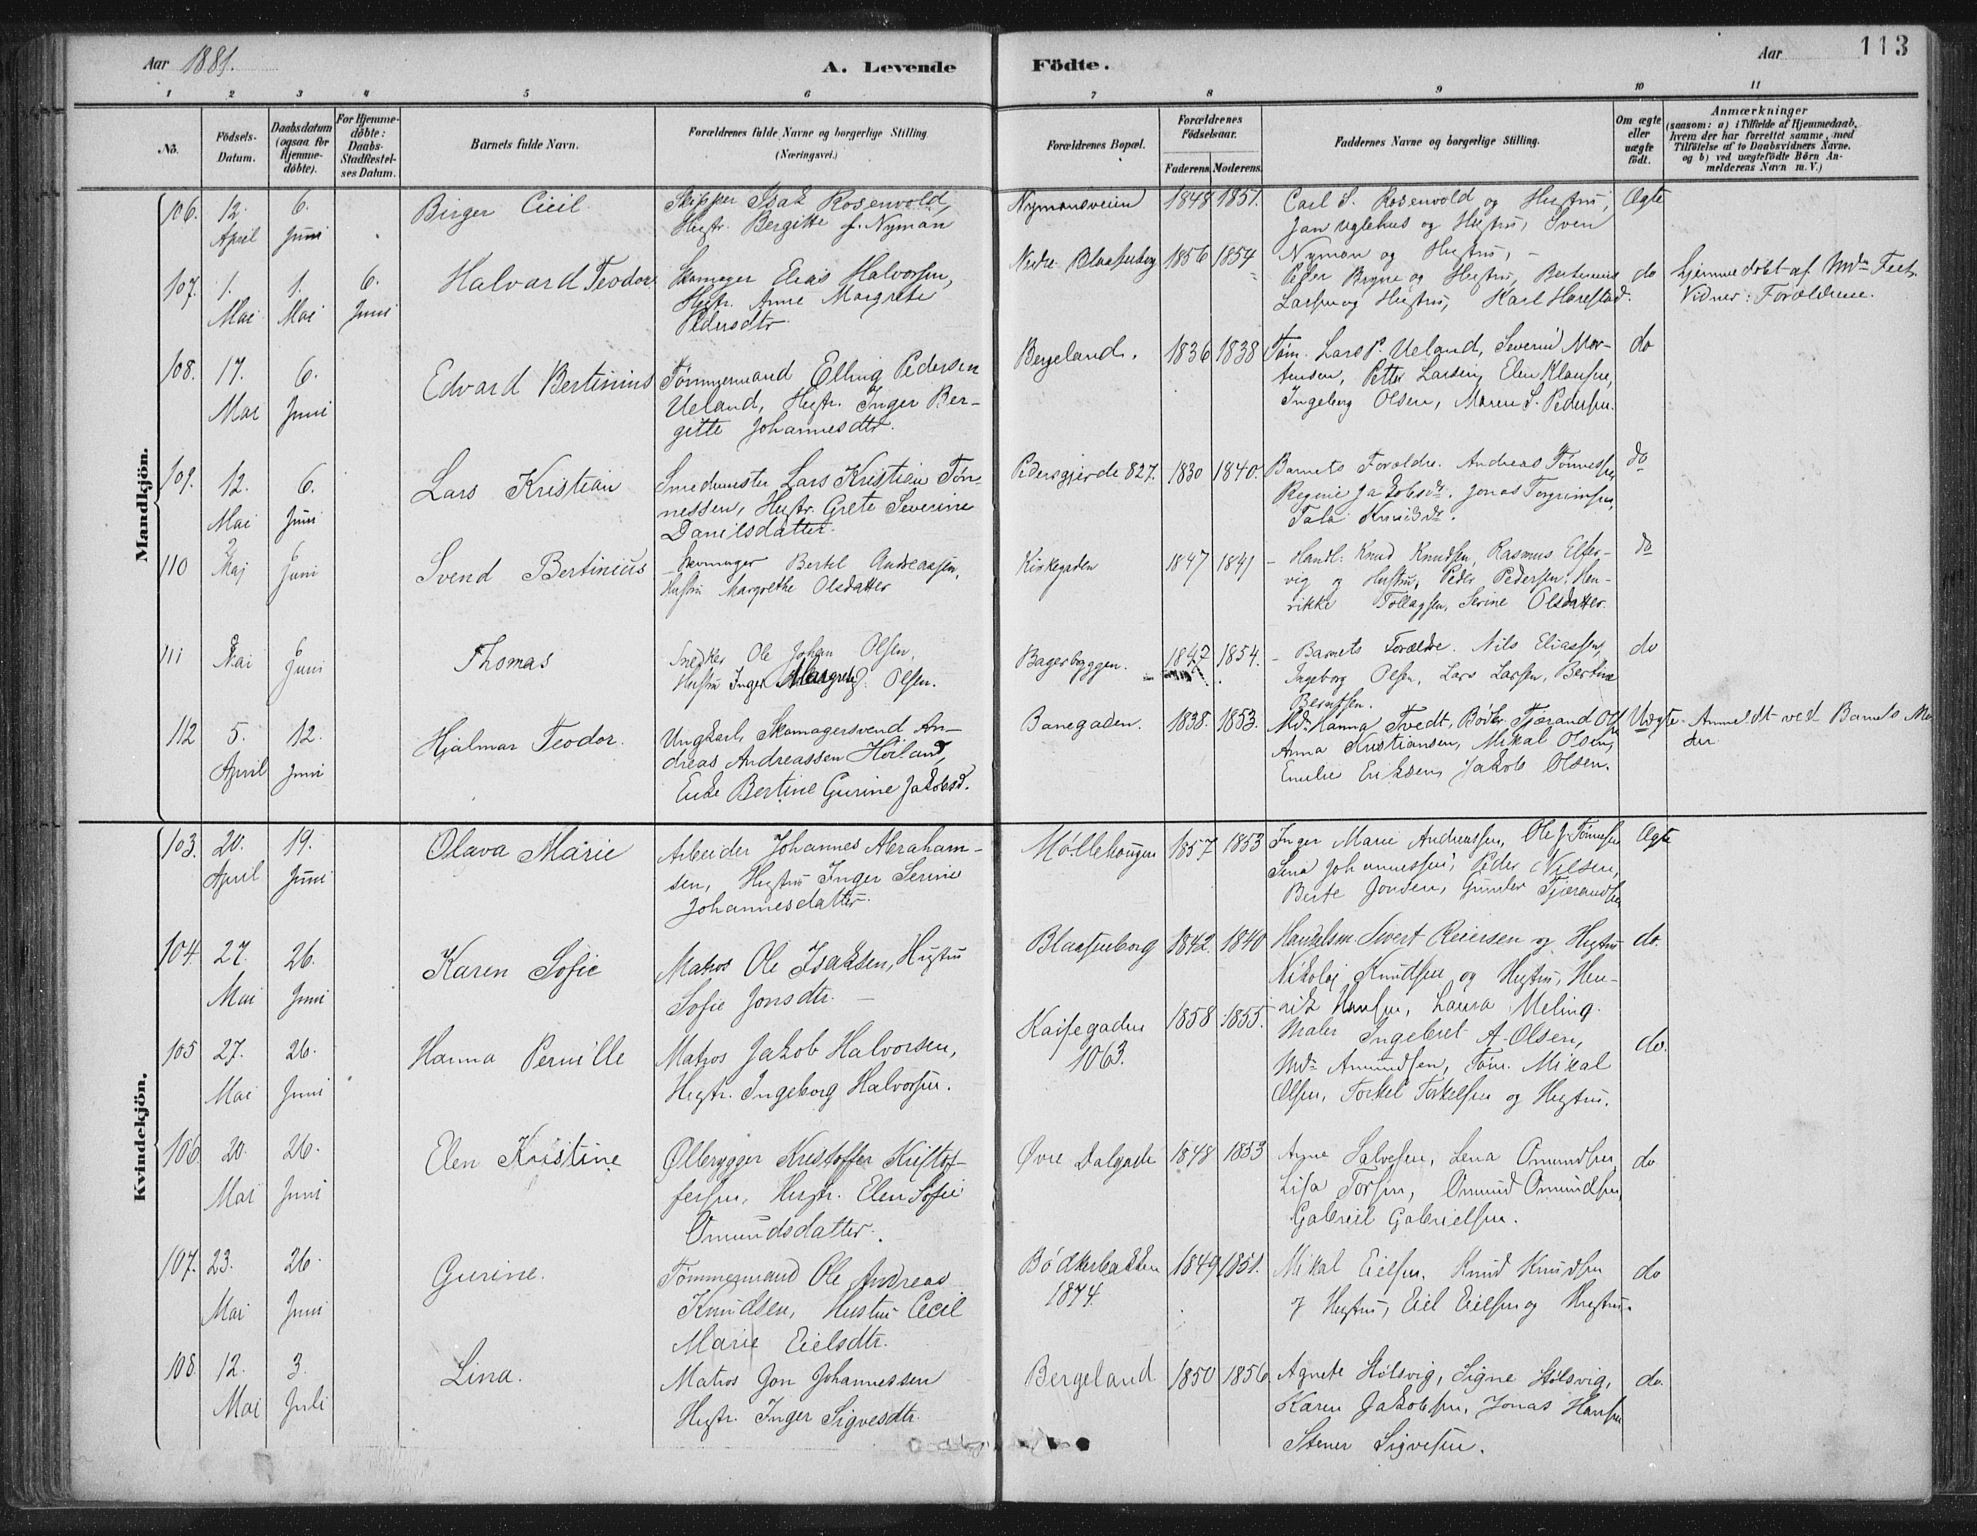 Aar 1881.
A. Levende Födte.
Aar
113
1 2 3 4 5 6 7 8 9 10 11
No.
Födsels-Datum.
Daabsdatum (ogsaa for Hjemmedöbte).
For Hjemmedöbte: Daabs-Stadfæstelses Datum.
Barnets fulde Navn.
Forældrenes fulde Navne og borgerlige Stilling
(Næringsvei.)
Forældrenes Bopæl.
Forældrenes Födselsaar.
Faderens. Moderens.
Faddernes Navne og borgerlige Stilling.
Om ægte eller uægte födt.
Anmærkninger
(saasom: a) i Tilfælde af Hjemmedaab,
hvem der har forrettet samme, med
Tilföielse af to Daabsvidners Navne,
og b) ved uægtefödte Börn An-
melderens Navn m. V.)
Mandkjön.
106. 12. April 6. Juni Birger Cicil
Skipper Isak Rosenvold,
Hustr. Bergitte f. Nyman
Nymansveien 1848 1851.
Carl S. Rosenvold og Hustru,
Jan Uglehus og Hustru, Sven
Nyman og Hustru, -
Ægte
107. 1. Mai 1. Mai 6. Juni Halvard Teodor
Skomager Elias Halvorsen,
Hustr. Anne Margrete
Pedersdtr.
Nedre Blaasenborg 1856 1854
Peder Bryne og Hustru, Bertinius
Larsen og Hustru, Karl Harestad.
do
Hjemmedøbt af Md.
Vidner: Forældrene.
108. 17. Mai 6. Juni Edvard Bertinius
Tømmermand Elling Pedersen
Ueland, Hustr. Inger Ber-
gitte Johannesdtr.
Bergeland. 1836 1838
Tøm. Lars P. Ueland, Severin Mor-
tensen, Petter Larsen, Elen Klausen,
Ingeborg Olsen, Maren S. Pedersen.
do
109. 12. Mai 6. Juni Lars Kristian
Smedmester Lars Kristian Tøn-
nessen, Hustr. Grete Severine
Danielsdatter.
Pedersgjerde 827. 1830 1840.
Barnets Forældre. Andreas Tønnesen,
Regine Jakobsdtr. Jonas Torgrimsen,
Tala Knudsdtr.
do
110 2 Maj 6 Juni Svend Bertinius
Skomager Bertel Andreasen,
Hustru Margrethe Olsdatter
Kirkegaden 1847 1841
- Handl: Knud Knudsen, Rasmus
vig og Hustru, Peder Pedersen, Hen-
rikke Tollagsen, Serine Olsdatter.
do
111 Mai 6 Juni Thomas
Snedker Ole Johan Olsen,
Hustru Inger Margrete f. Olsen.
Bagerbyggen. 1847 1854.
- Barnets Forældre. Nils Eliassen,
Ingeborg Olsen, Lars Larsen, Bertina
do
112 5. April 12. Juni Hjalmar Teodor.
Ungkarl, Skomagersvend An-
dreas Andreassen Høiland,
Enke Bertine Gurine Jakobsd.
Banegaden. 1838. 1853.
Md. Hanna Tvedt, Bødker Tjerand Olsen
Anna Kristiansen, Mikal Olsen,
Emelie Eriksen, Jakob Olsen.
Uægte.
Anmeldt ved Barnets Mo-
der
Kvindekjön.
103. 20. April 19. Juni Olava Marie
Arbeider Johannes Abraham-
sen, Hustru Inger Serine
Johannesdatter.
Møllehougen 1857 1853
Inger Marie Andreassen, Ole J. Tønnesen
Sina Johannessen, Peder Nilsen,
Berte Jonsen, Gunder Tjerandsen
Ægte
104. 27. Mai 26. Juni Karen Sofie
Matros Ole Isaksen, Hustru
Sofie Jonsdtr. -
Blaasenborg 1842. 1840
Handelsm. Sivert Reiersen og Hustru
Nikolaj Knudsen og Hustru, Hen-
rik Hansen, Laura Meling.
do.
105 27. Mai 26. Juni Hanna Pernille
Matros Jakob Halvorsen,
Hustr. Ingeborg Halvorsen.
Kaisegaden 1063. 1858 1855.
Maler Ingebret A. Olsen,
Md. Amundsen, Tøm. Mikal
Olsen, Torkel Torkelsen og Hustru.
do.
106 20. Mai 26. Juni Elen Kristine
Ølbrygger Kristoffer Kristof-
fersen, Hustr. Elen Sofie
Omundsdatter.
Øvre Dalgade 1848 1853
Salvesen, Lena Omundsen,
Lisa Torsen, Omund Omundsen,
Gabriel Gabrielsen.
do
107. 23. Mai 26. Juni Gurine.
Tømmermand Ole Andreas
Knudsen, Hustru Cecil
Marie Eielsdtr.
Bødkerbakken 1874. 1849 1851.
Mikal Eielsen. Knud Knudsen
og Hustru, Eiel Eielsen og Hustru.
do
108. 12. Mai 3. Juli Lina.
Matros Jon Johannessen
Hustr. Inger Sigvesdtr.
Bergeland 1850 1856
Agnete Hølsvig, Signe Hølsvig,
Karen Jakobsen, Jonas Hansen
Stener Sigvesen.
do.